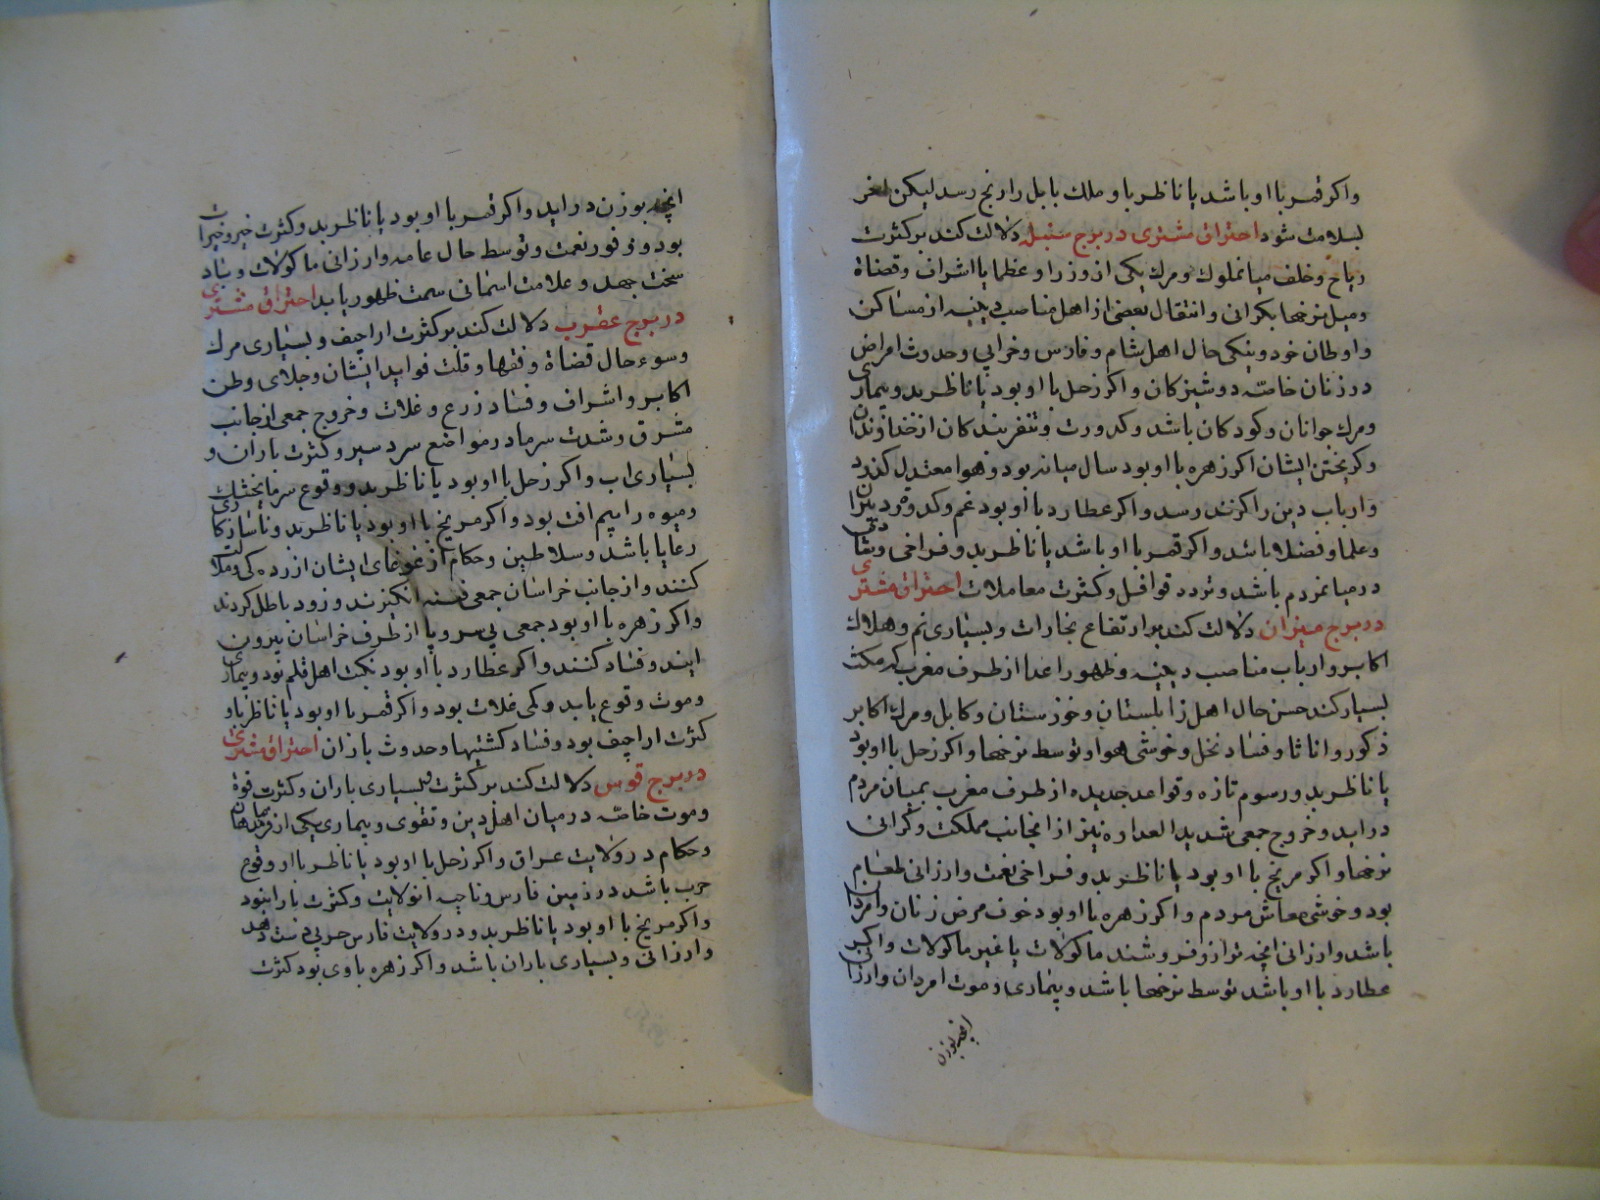 واکر قمر با او باشد یا ناظر باو ملك بابل را رنج رسد لیکن اخر
بسلامت شود احتراق مشتری در برج سنبله دلالت کند بر کثرت
ریاح و خلف میانملوك و مرك یکی از وزرا و عظما یا اشراف و قضاة
و میل نرخها بکرانی و انتقال بعضی از اهل مناصب دینیه از مساکن
و اوطان خود و نیکی حال اهل شام و فارس و خرابی و حدوث امراض
در زنان خاصه دوشیزکان و اکر زحل با او بود یا ناظر بدو بیماری
و مرك جوانان و کودکان باشد و کدورت و تنفر بندکان از خداوندان
و کریختن ایشان اکر زهره با او بود سال میانه بود و هوا معتدل کذرد
و ارباب دین را کزند رسد و اکر عطارد با او بود غم و کد و مرد بیران
و علما و فضلا باشد و اکر قمر با او باشد یا ناظر بدو فراخی و
در میانمردم باشد و تردد قوافل و کثرت معاملات احتراق مشتری
در برج میزان دلالت کند بر ارتفاع بخارات و بسیاری نم و هلاك
اکابر و ارباب مناصب دینیه و ظهور اعدا از طرف مغرب که مکث
بسیار کند حسن حال اهل زابلستان و خوزستان و کابل و مرك اکابر
ذکور و اناثا و فساد نخل و خوشی هوا و توسط نرخها و اکر زحل با او بود
یا ناظر بدو رسوم تازه و قواعد جدیده از طرف مغرب بمیان مردم
در اید و خروج جمعی شدید العداوه نیز از انجانب مملکت و کرانی
نرخها و اکر مریخ با او بود یا ناظر بدو فراخی نعمت و ارزانی طعام
بود و خوشی معاش مردم و اکر زهره با او بود خوف مرض زنان و امردان
باشد و ارزانی انچه ترازو فروشند ماکولات یا غیر ماکولات و اکر
عطارد با او باشد توسط نرخها باشد و بیماری و موت امردان و ارزانی
انچه بوزن
انچه بوزن در اید و اکر قمر با او بود یا ناظر بدو کثرت خیر و خیرات
بود و وفور نعمت و توسط حال عامه و ارزانی ماکولات و باد
سخت جهد و علامت اسمانی سمت ظهور یابد احتراق مشتری
در برج عقرب دلالت کند بر کثرت اراجیف و بسیاری مرك
و سوء حال قضاة و فقها و قلت فواید ایشان و جلای وطن
اکابر و اشراف و فساد زرع و غلات و خروج جمعی از جانب
مشرق و شدت سرما در مواضع سرد سیر و کثرت باران و
بسیاری اب و اکر زحل با او بود یا ناظر بدو وقوع سرما
و میوه را بیم افت بود و اکر مریخ با او بود یا ناظر بدو ناسازکاری
رعایا باشد و سلاطین و حکام از غوغای ایشان ازرده کی و ملالت
کنند و از جانب خراسان جمعی فتنه انکیزند و زود باطل کردند
و اکر زهره با او بود جمعی بی سر و پا از طرف خراسان بیرون
ایند و فساد کنند و اکر عطارد با او بود نکبت اهل قلم بود و بیماری
و موت وقوع یابد و کمی غلات بود و اکر قمر با او بود یا ناظر باو
کثرت اراجیف بود و فساد کشتیها و حدوث باران احتراق مشتری
در برج قوس دلالت کند بر کثرت و بسیاری باران و کثرت
و موت خاصه در میان اهل دین و تقوی و بیماری یکی از فرمان دهان
و حکام در ولایت عراق و اکر زحل با او بود یا ناظر باو وقوع
حرب باشد در زمین فارس و ناحیه انولایت و کثرت باران بود
و اکر مریخ با او بود یا ناظر بدو در ولایت فارس حربی دست دهد
و ارزانی و بسیاری باران باشد و اکر زهره با وی بود کثرت